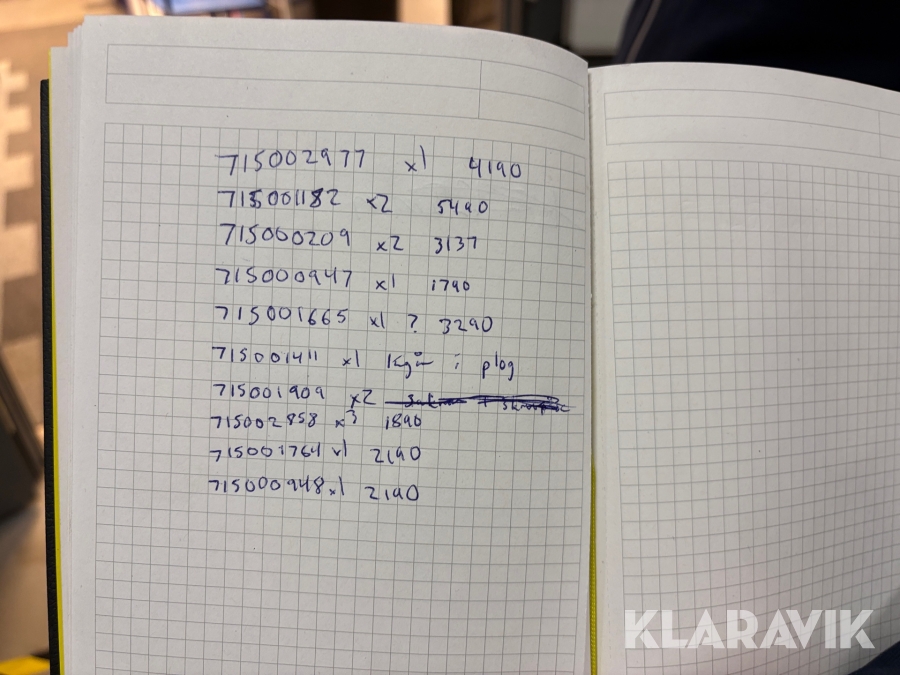 715002977 x1 4190
715001182 x2 5490
715000209 x2 3137
715000947 x1 1790
715001665 x1 ? 3290
715001411 x1 i plog
715001909 x2
715002858 x3 1890
715001764 x1 2190
715000948 x1 2190
KLARAVIK